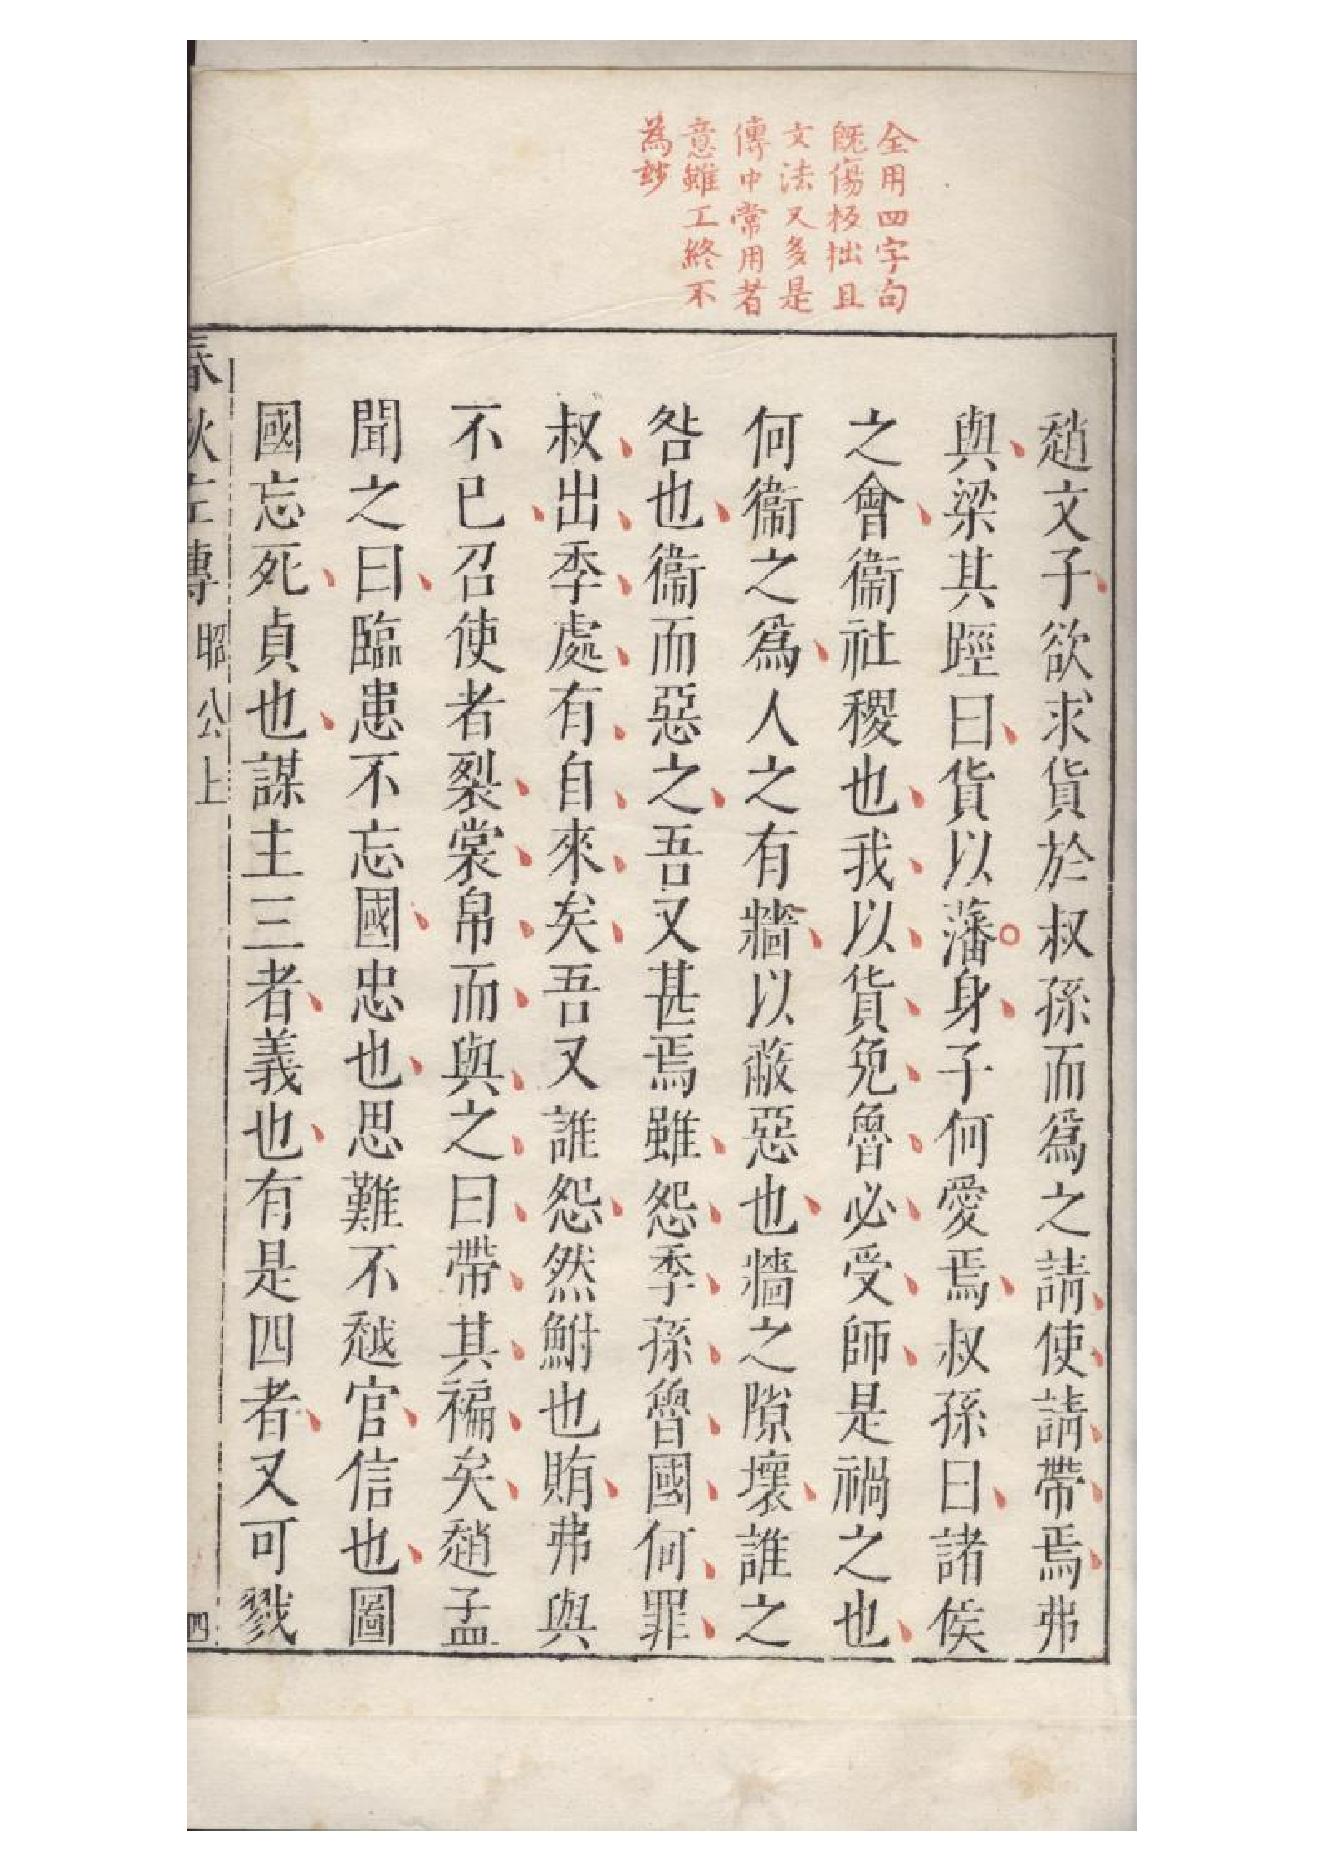 全用四字句
旣傷板拙且
文法又多是
傳中常用者
意雖工終不
為玅
趙文子欲求貨於叔孫而爲之請使請帶焉弗
與梁其踁曰貨以藩身子何愛焉叔孫曰諸侯
之會衞社稷也我以貨免魯必受師是禍之也
何衞之爲人之有牆以蔽惡也牆之隙壞誰之
咎也衞而惡之吾又甚焉雖怨季孫魯國何罪
叔出季處有自來矣吾又誰怨然鮒也賄弗與
不已召使者裂裳帛而與之曰帶其褊矣趙孟
聞之曰臨患不忘國忠也思難不越官信也圖
國忘死貞也謀主三者義也有是四者又可戮
春秋左傳 昭公上
四